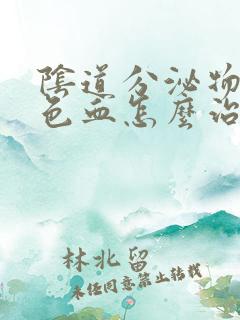 陰道分泌物
色血怎麼治
林北留
未任同意禁止转载